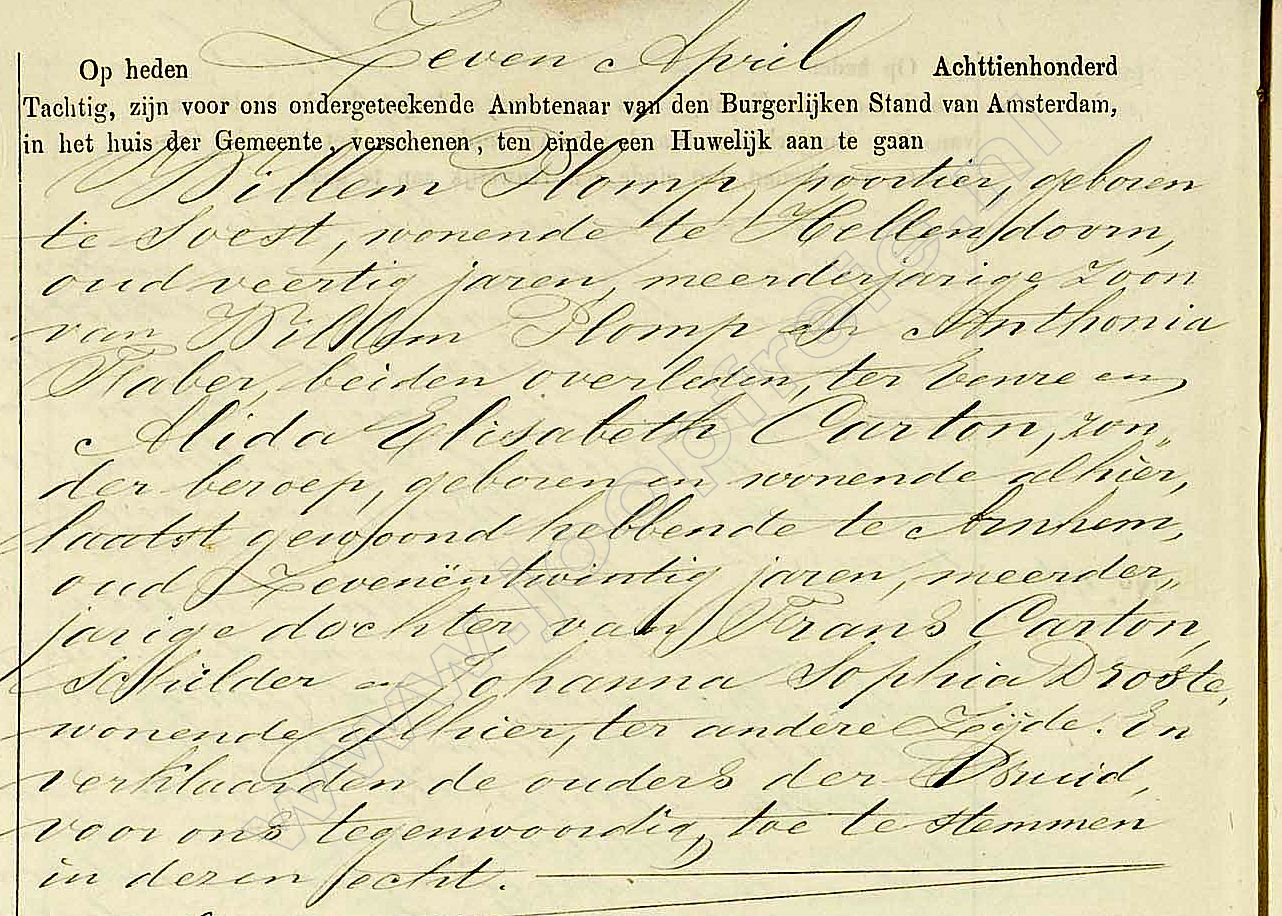 Op heden Zeven April Achttienhonderd
Tachtig, zijn voor ons ondergeteekende Ambtenaar van den Burgerlijken Stand van Amsterdam,
in het huis der Gemeente, verschenen, ten einde een Huwelijk aan te gaan
Willem Plomp, poortier, geboren
te Soest, wonende te Hellendoorn,
oud veertig jaren, meerderjarige zoon
van Willem Plomp en Anthonia
Faber, beiden overleden, ter eenre en
Alida Elisabeth Carton, zon„
der beroep, geboren en wonende alhier,
laatst gewoond hebbende te Arnhem,
oud Zevenëntwintig jaren, meerder„
jarige dochter van Frans Carton,
schilder en Johanna Sophia Droste,
wonende alhier, ter andere Zijde. En
verklaarden de ouders der Bruid,
voor ons tegenwoordig, toe te stemmen
in dezen echt.
www.joopfreie.nl